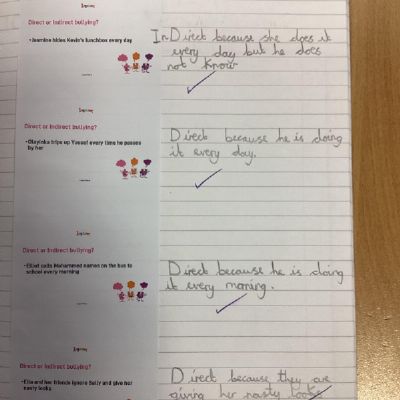 Direct or Indirect bullying?
•Jasmine hides Kevin's lunchbox every day
InDirect because she does it
every day but he does
not know
Direct or Indirect bullying?
•Olayinka trips up Yussuf every time he passes
by her
Direct because he is doing
it every day.
Direct or Indirect bullying?
•Elliot calls Mohammed names on the bus to
school every morning
Direct because he is doing
it every morning.
Direct or Indirect bullying?
•Ella and her friends ignore Sally and give her
nasty looks
Direct because they are
giving her nasty looks